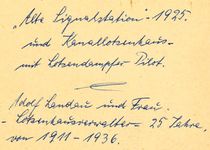 „Alte Signalstation" - 1925.
und Kanallotsenhaus -
mit Lotsendampfer Pilot.
Adolf Landau und Frau.
- Lotsenhausverwalter = 25 Jahre.
von 1911 - 1936.